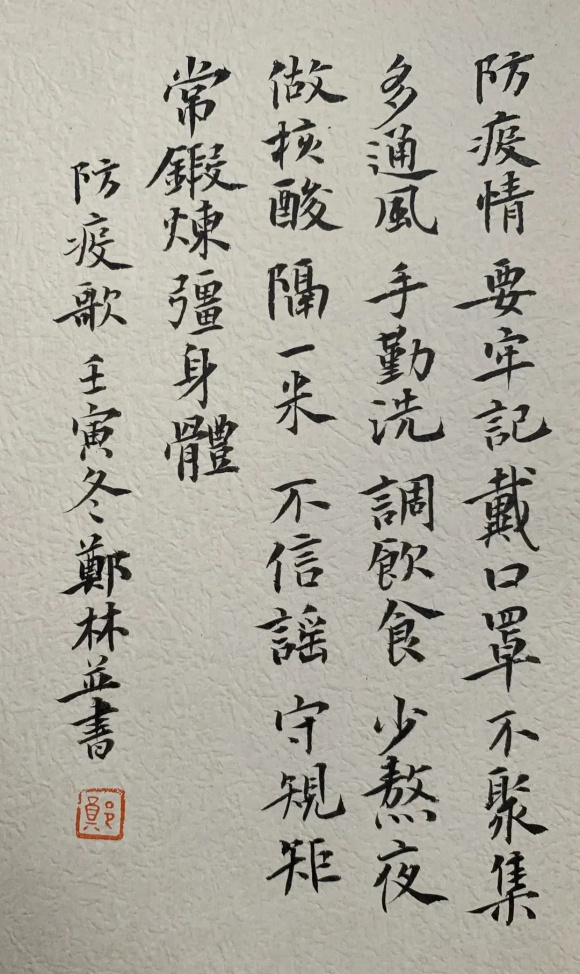 防疫情 要牢記 戴口罩 不聚集
多通風 手勤洗 調飲食 少熬夜
做核酸 隔一米 不信謡 守規矩
常鍛煉彊身體
防疫歌 壬寅冬 鄭林並書
鄭